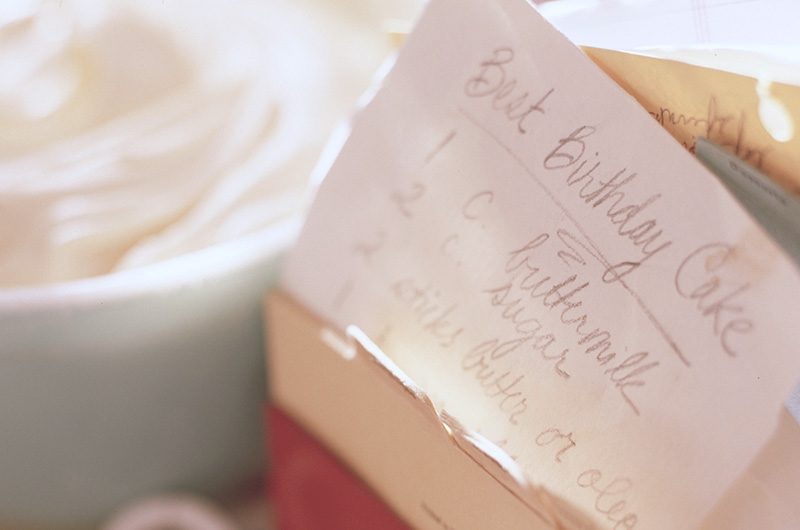 Best Birthday Cake
1 c. buttermilk
2 c. sugar
2 sticks butter or oleo
1